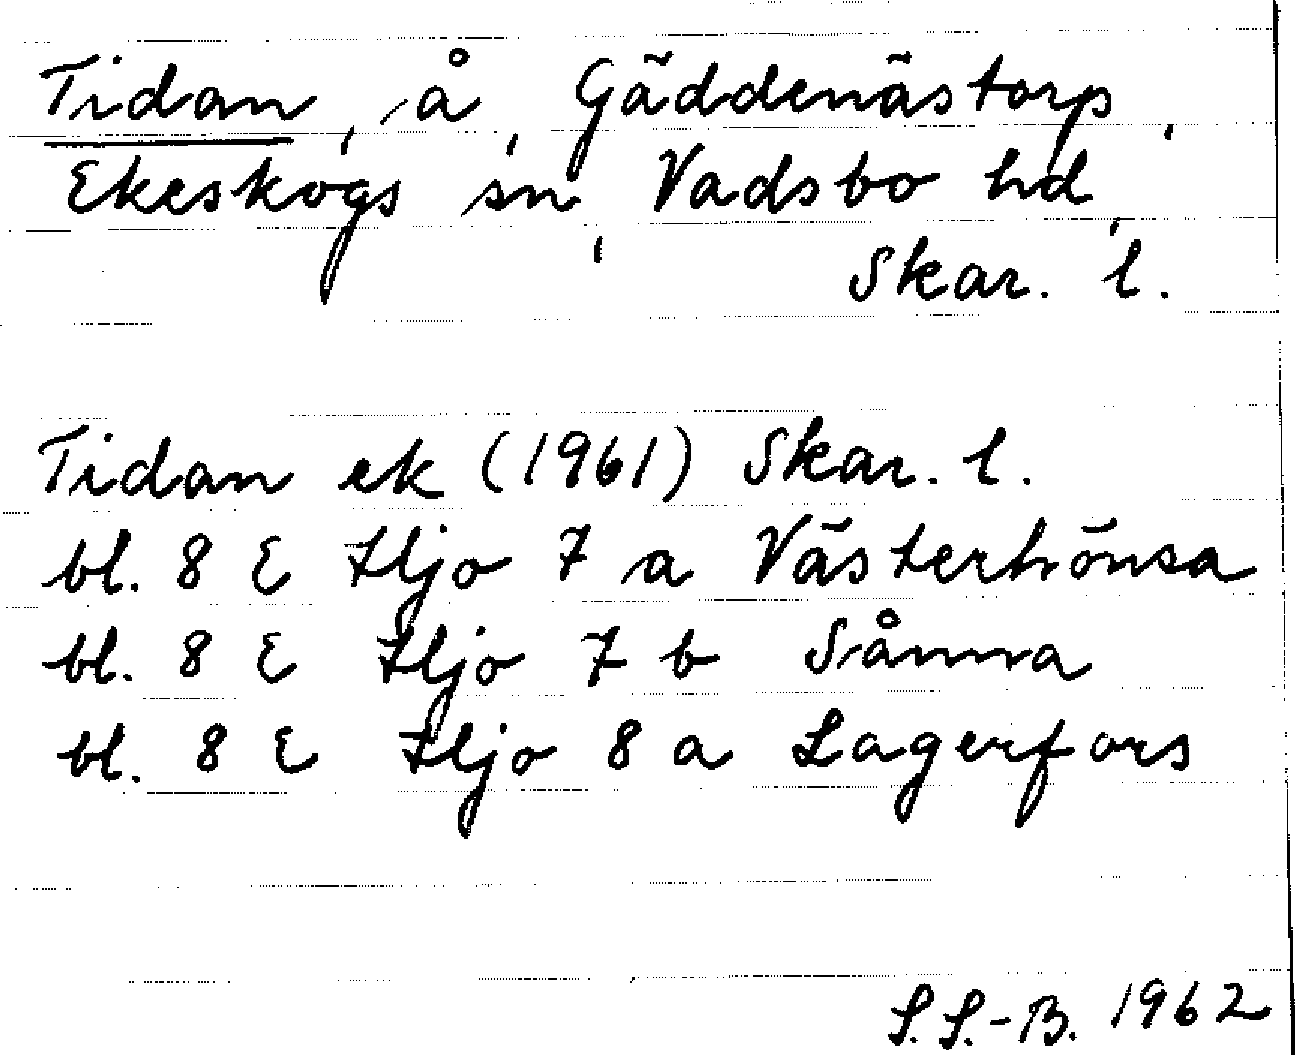 Tidan, å, Gäddenästorp,
Ekeskogs sn, Vadsbo hd,
Skar. l.
Tidan ek (1961) Skar. l.
bl. 8 E Hjo 7 a Västerhönsa
bl. 8 E Hjo 7 b Sånna
bl. 8 E Hjo 8 a Lagerfors
S.S.-B. 1962